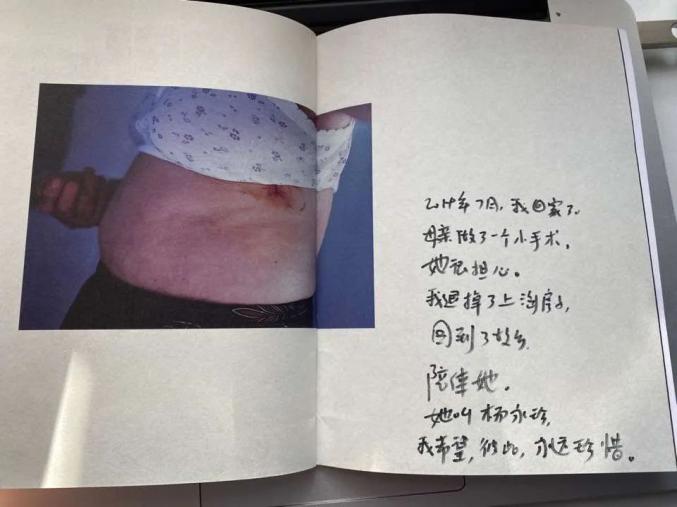 年7月，我回家了。
母亲做了一个小手术，
她很担心。
我退掉了上海房子，
回到了故乡
陪伴她。
她叫杨永珍，
我希望，彼此，永远珍惜。